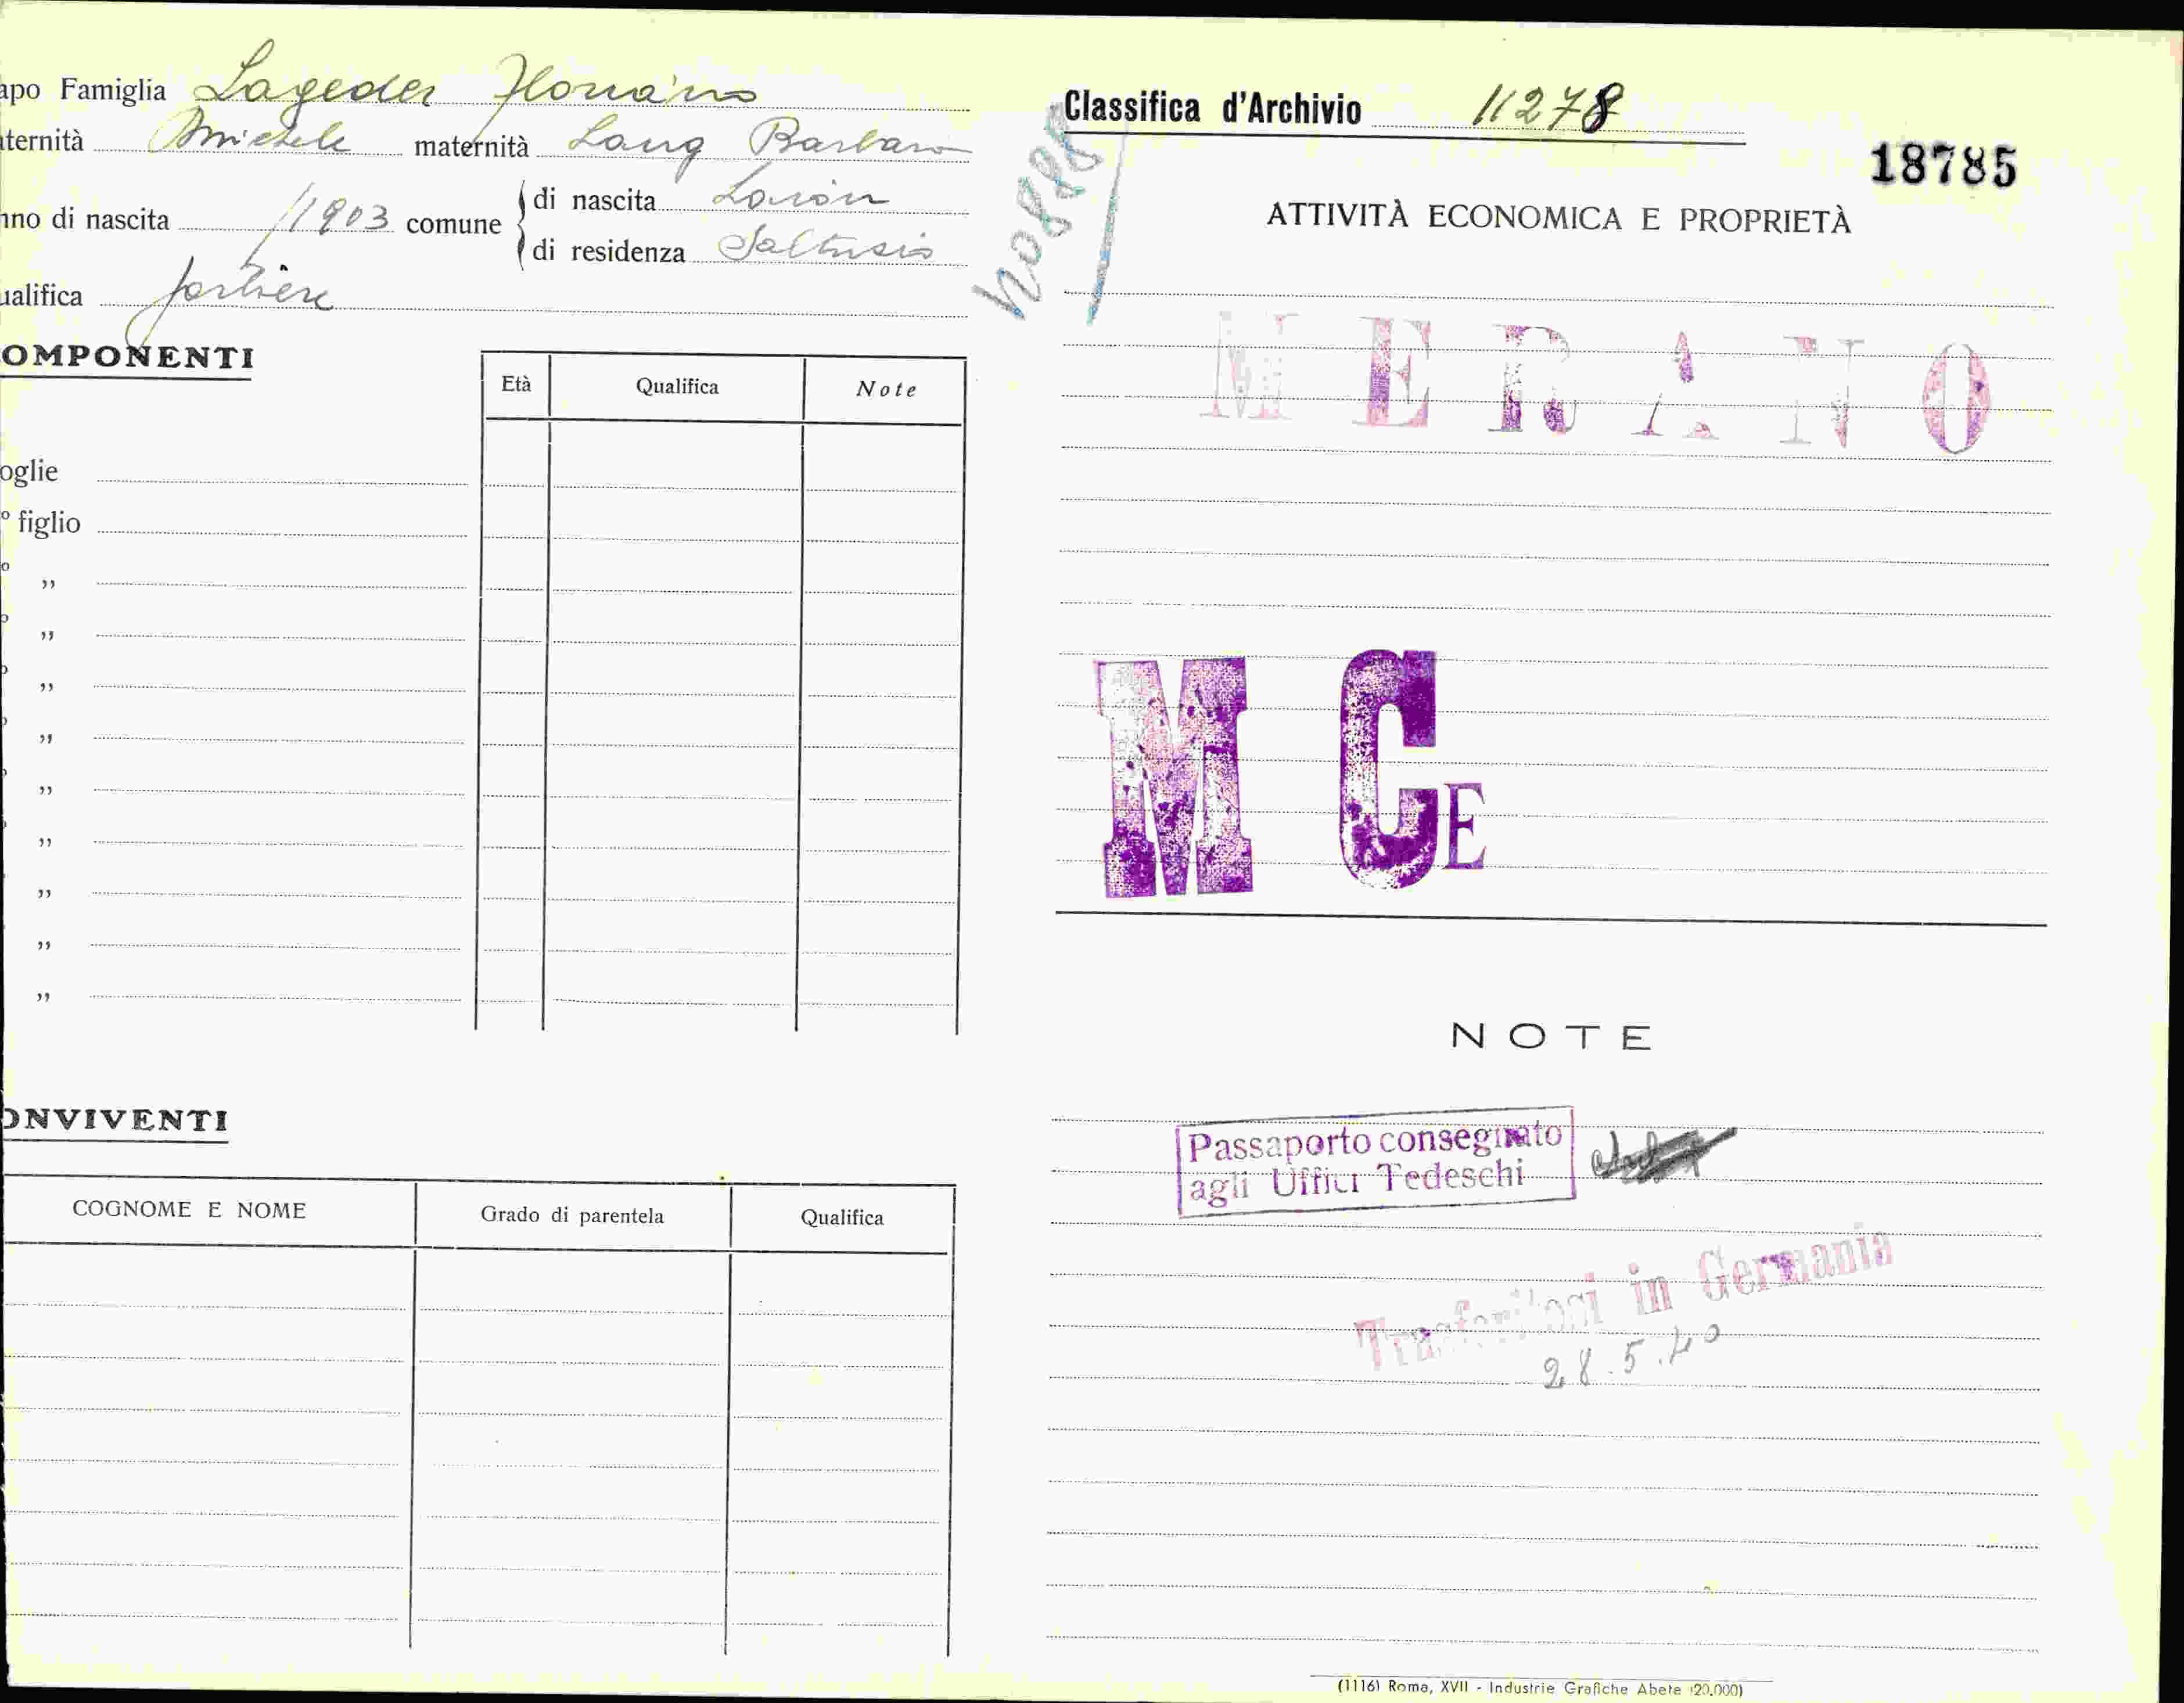 apo Famiglia Lageder Floriano
aternità Michele maternità Lang Barbara
nno di nascita 1903 comune di nascita Lauon
di residenza Saltusio
ualifica portiere
OMPONENTI
Età Qualifica Note
oglie
° figlio
„
„
„
„
„
„
„
„
„
ONVIVENTI
COGNOME E NOME Grado di parentela Qualifica
Classifica d'Archivio 11278
18785
ATTIVITÀ ECONOMICA E PROPRIETÀ
MERANO
M CE
NOTE
Passaporto consegnato
agli Uffici Tedeschi
Trasferitosi in Germania
28.5.40
(1116) Roma, XVII - Industrie Grafiche Abete (20.000)